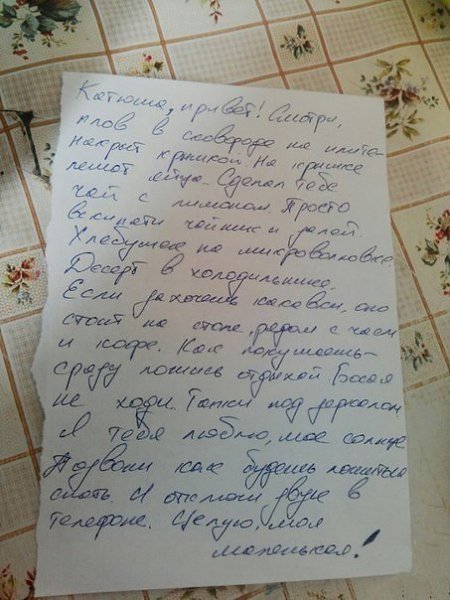 Катюша, привет! Смотри,
плов в сковороде на плите
накрыт крышкой. На крышке
лежат яйца. Сделал тебе
чай с лимоном. Просто
вскипяти чайник и залей.
Хлебушек на микроволновке
Десерт в холодильнике.
Если захочешь какавы, оно
стоит на столе, рядом с чаем
и кофе. Как покушаешь-
сразу ложись отдыхай Босая
не ходи. Тапки под зеркалом
Я тебя люблю, мое солнце
Позвони как будешь ложиться
спать. И отключи звук в
телефоне. Целую, моя
маленькая!